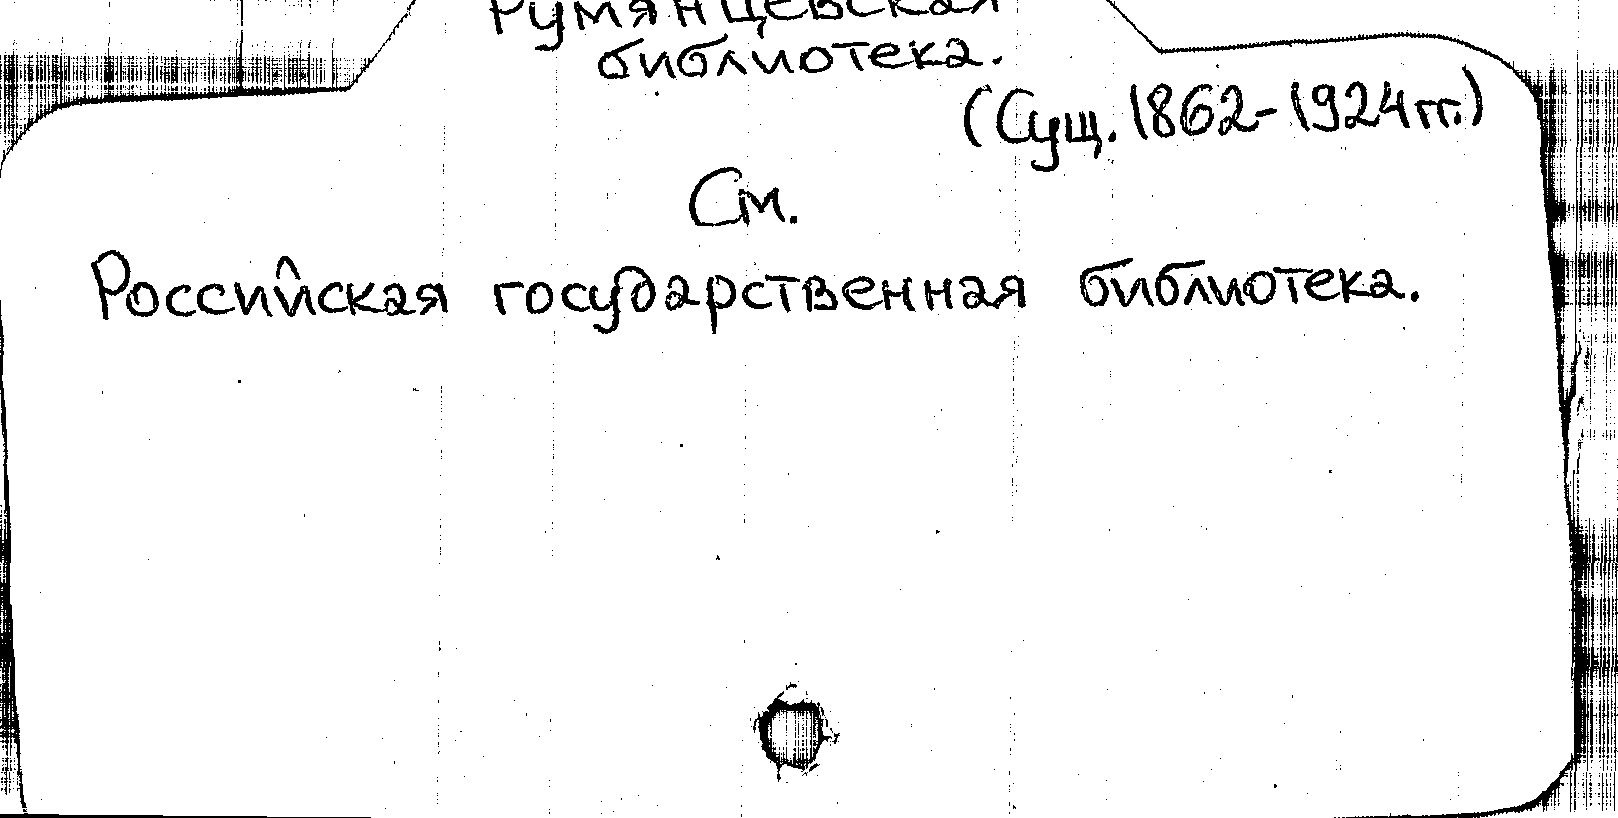 Румянцевская
библиотека.
(Сущ. 1862-1924 гг.)
См.
Российская государственная библиотека.